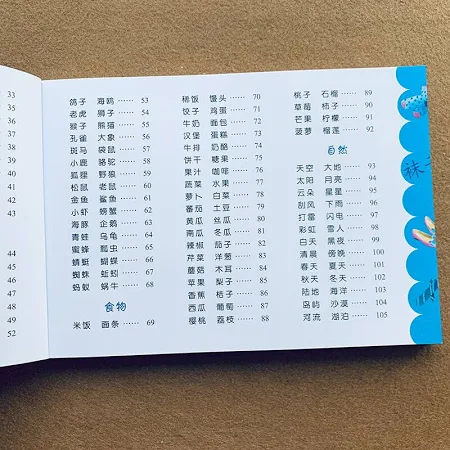 33
34
35
36
37
38
39
40
41
42
43
44
45
46
47
48
49
50
51
52
鸽子 海鸥 …… 53
老虎 狮子 …… 54
猴子 熊猫 …… 55
孔雀 大象 …… 56
斑马 袋鼠 …… 57
小鹿 骆驼 …… 58
狐狸 野狼 …… 59
松鼠 老鼠 …… 60
金鱼 鲨鱼 …… 61
小虾 螃蟹 …… 62
海豚 企鹅 …… 63
青蛙 乌龟 …… 64
蜜蜂 瓢虫 …… 65
蜻蜓 蝴蝶 …… 66
蜘蛛 蚯蚓 …… 67
蚂蚁 蜗牛 …… 68
食物
米饭 面条 …… 69
稀饭 馒头 …… 70
饺子 鸡蛋 …… 71
牛奶 面包 …… 72
汉堡 蛋糕 …… 73
牛排 奶酪 …… 74
饼干 糖果 …… 75
果汁 咖啡 …… 76
蔬菜 水果 …… 77
萝卜 白菜 …… 78
番茄 土豆 …… 79
黄瓜 丝瓜 …… 80
南瓜 冬瓜 …… 81
辣椒 茄子 …… 82
芹菜 洋葱 …… 83
蘑菇 木耳 …… 84
苹果 梨子 …… 85
香蕉 桔子 …… 86
西瓜 葡萄 …… 87
樱桃 荔枝 …… 88
桃子 石榴 …… 89
草莓 柿子 …… 90
芒果 柠檬 …… 91
菠萝 榴莲 …… 92
自然
天空 大地 …… 93
太阳 月亮 …… 94
云朵 星星 …… 95
刮风 下雨 …… 96
打雷 闪电 …… 97
彩虹 雪人 …… 98
白天 黑夜 …… 99
清晨 傍晚 …… 100
春天 夏天 …… 101
秋天 冬天 …… 102
陆地 海洋 …… 103
岛屿 沙漠 …… 104
河流 湖泊 …… 105
袜子